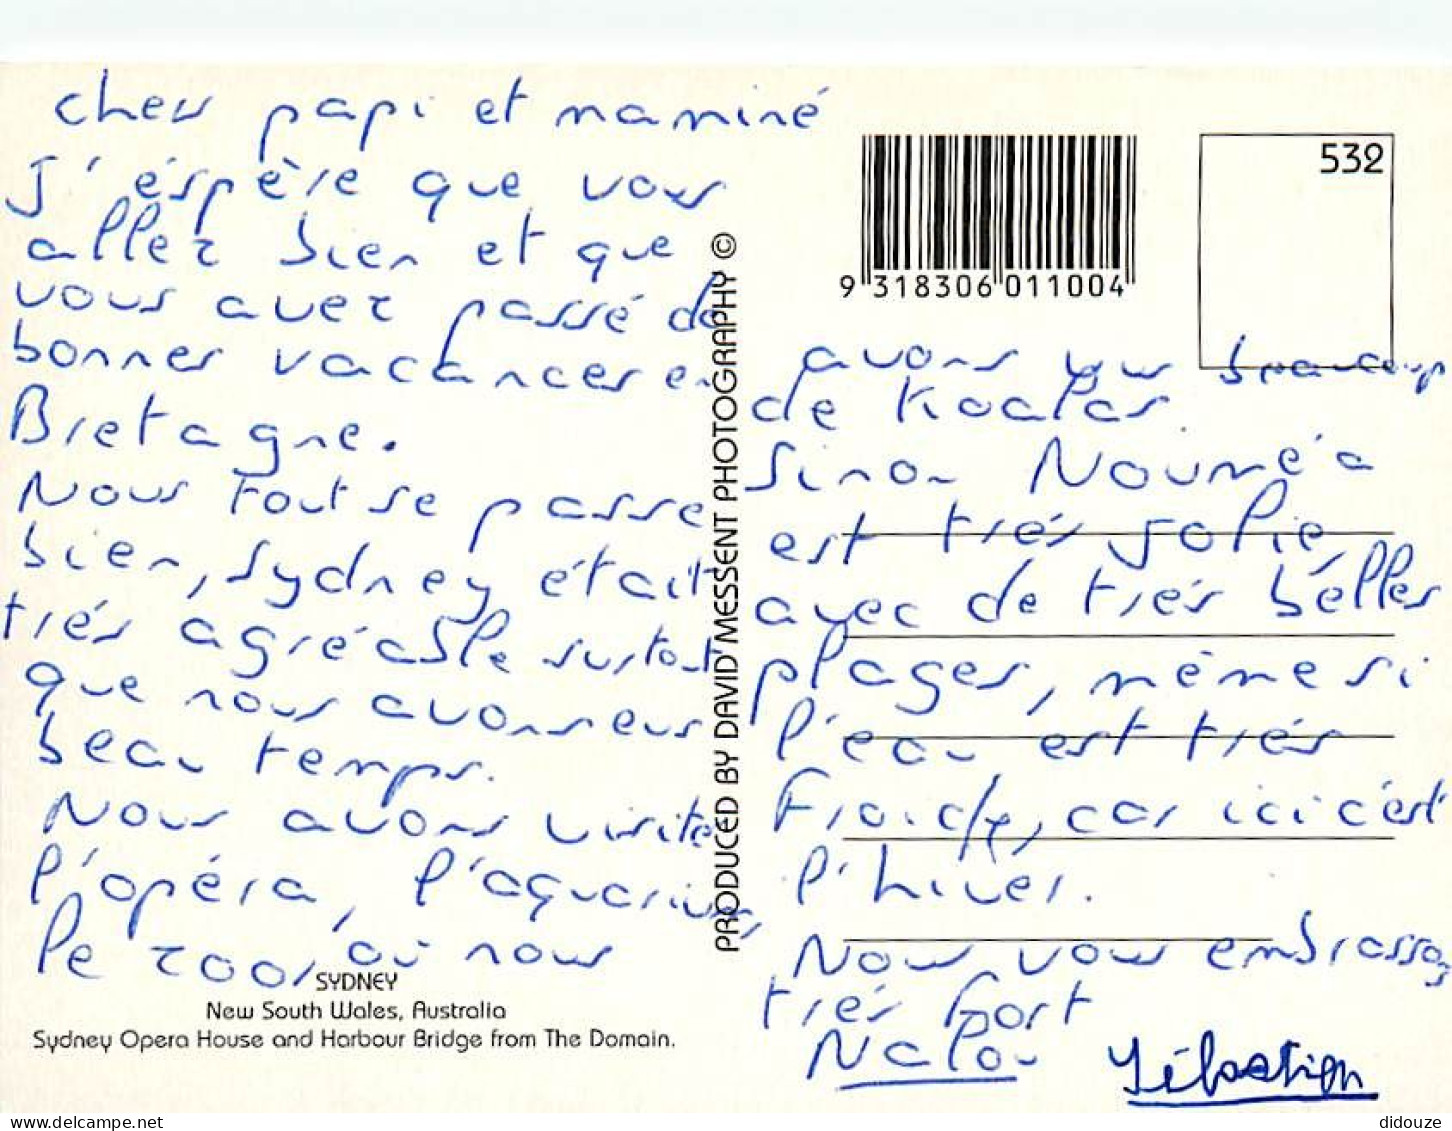 cher papi et maminé
J'éspère que vous
allez bien et que
vous avez passé de
bonnes vacances en
Bretagne.
Nous tout se passe
bien, sydney était
trés agréable surtout
que nous avons eus
beau temps.
Nous avons visité
l'opéra, l'aquarium,
le zoo, où nous
SYDNEY
New South Wales, Australia
Sydney Opera House and Harbour Bridge from The Domain.
PRODUCED BY DAVID MESSENT PHOTOGRAPHY ©
9 318306 011004
532
avons vus beaucoup
de Koalas.
Sinon Nouméa
est trés jolie,
avec de trés bélles
plages, même si
l'eau est trés
Froide, car ici c'est
l'hiver.
Nous vous embrassons
trés fort
Nalou Sébastien
delcampe.net
didouze